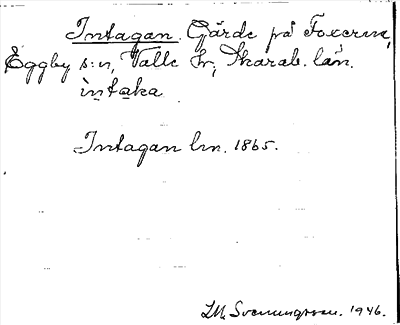 Intagan. Gärde på Foxerna,
Eggby s:n, Valle hr, Skarab. län.
ìntaka
Intagan lm. 1865.
LM Svenungsson. 1946.